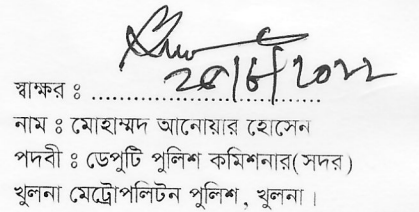 স্বাক্ষর ঃ ..............................
নাম ঃ মোহাম্মদ আনোয়ার হোসেন
পদবী ঃ ডেপুটি পুলিশ কমিশনার(সদর)
খুলনা মেট্রোপলিটন পুলিশ, খুলনা।